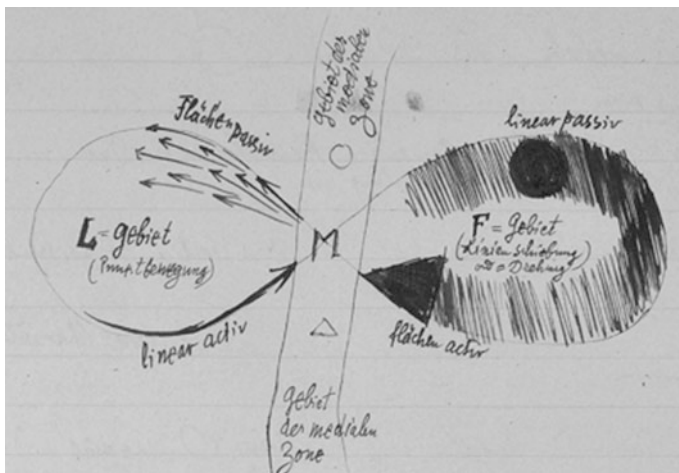 gebiet der
medialen
Zone
Flächen passiv
linear passiv
L = gebiet
(Punktbewegung)
M
F = gebiet
(Linienschiebung
od = Drehung)
linear activ
flächen activ
gebiet
der medialen
Zone